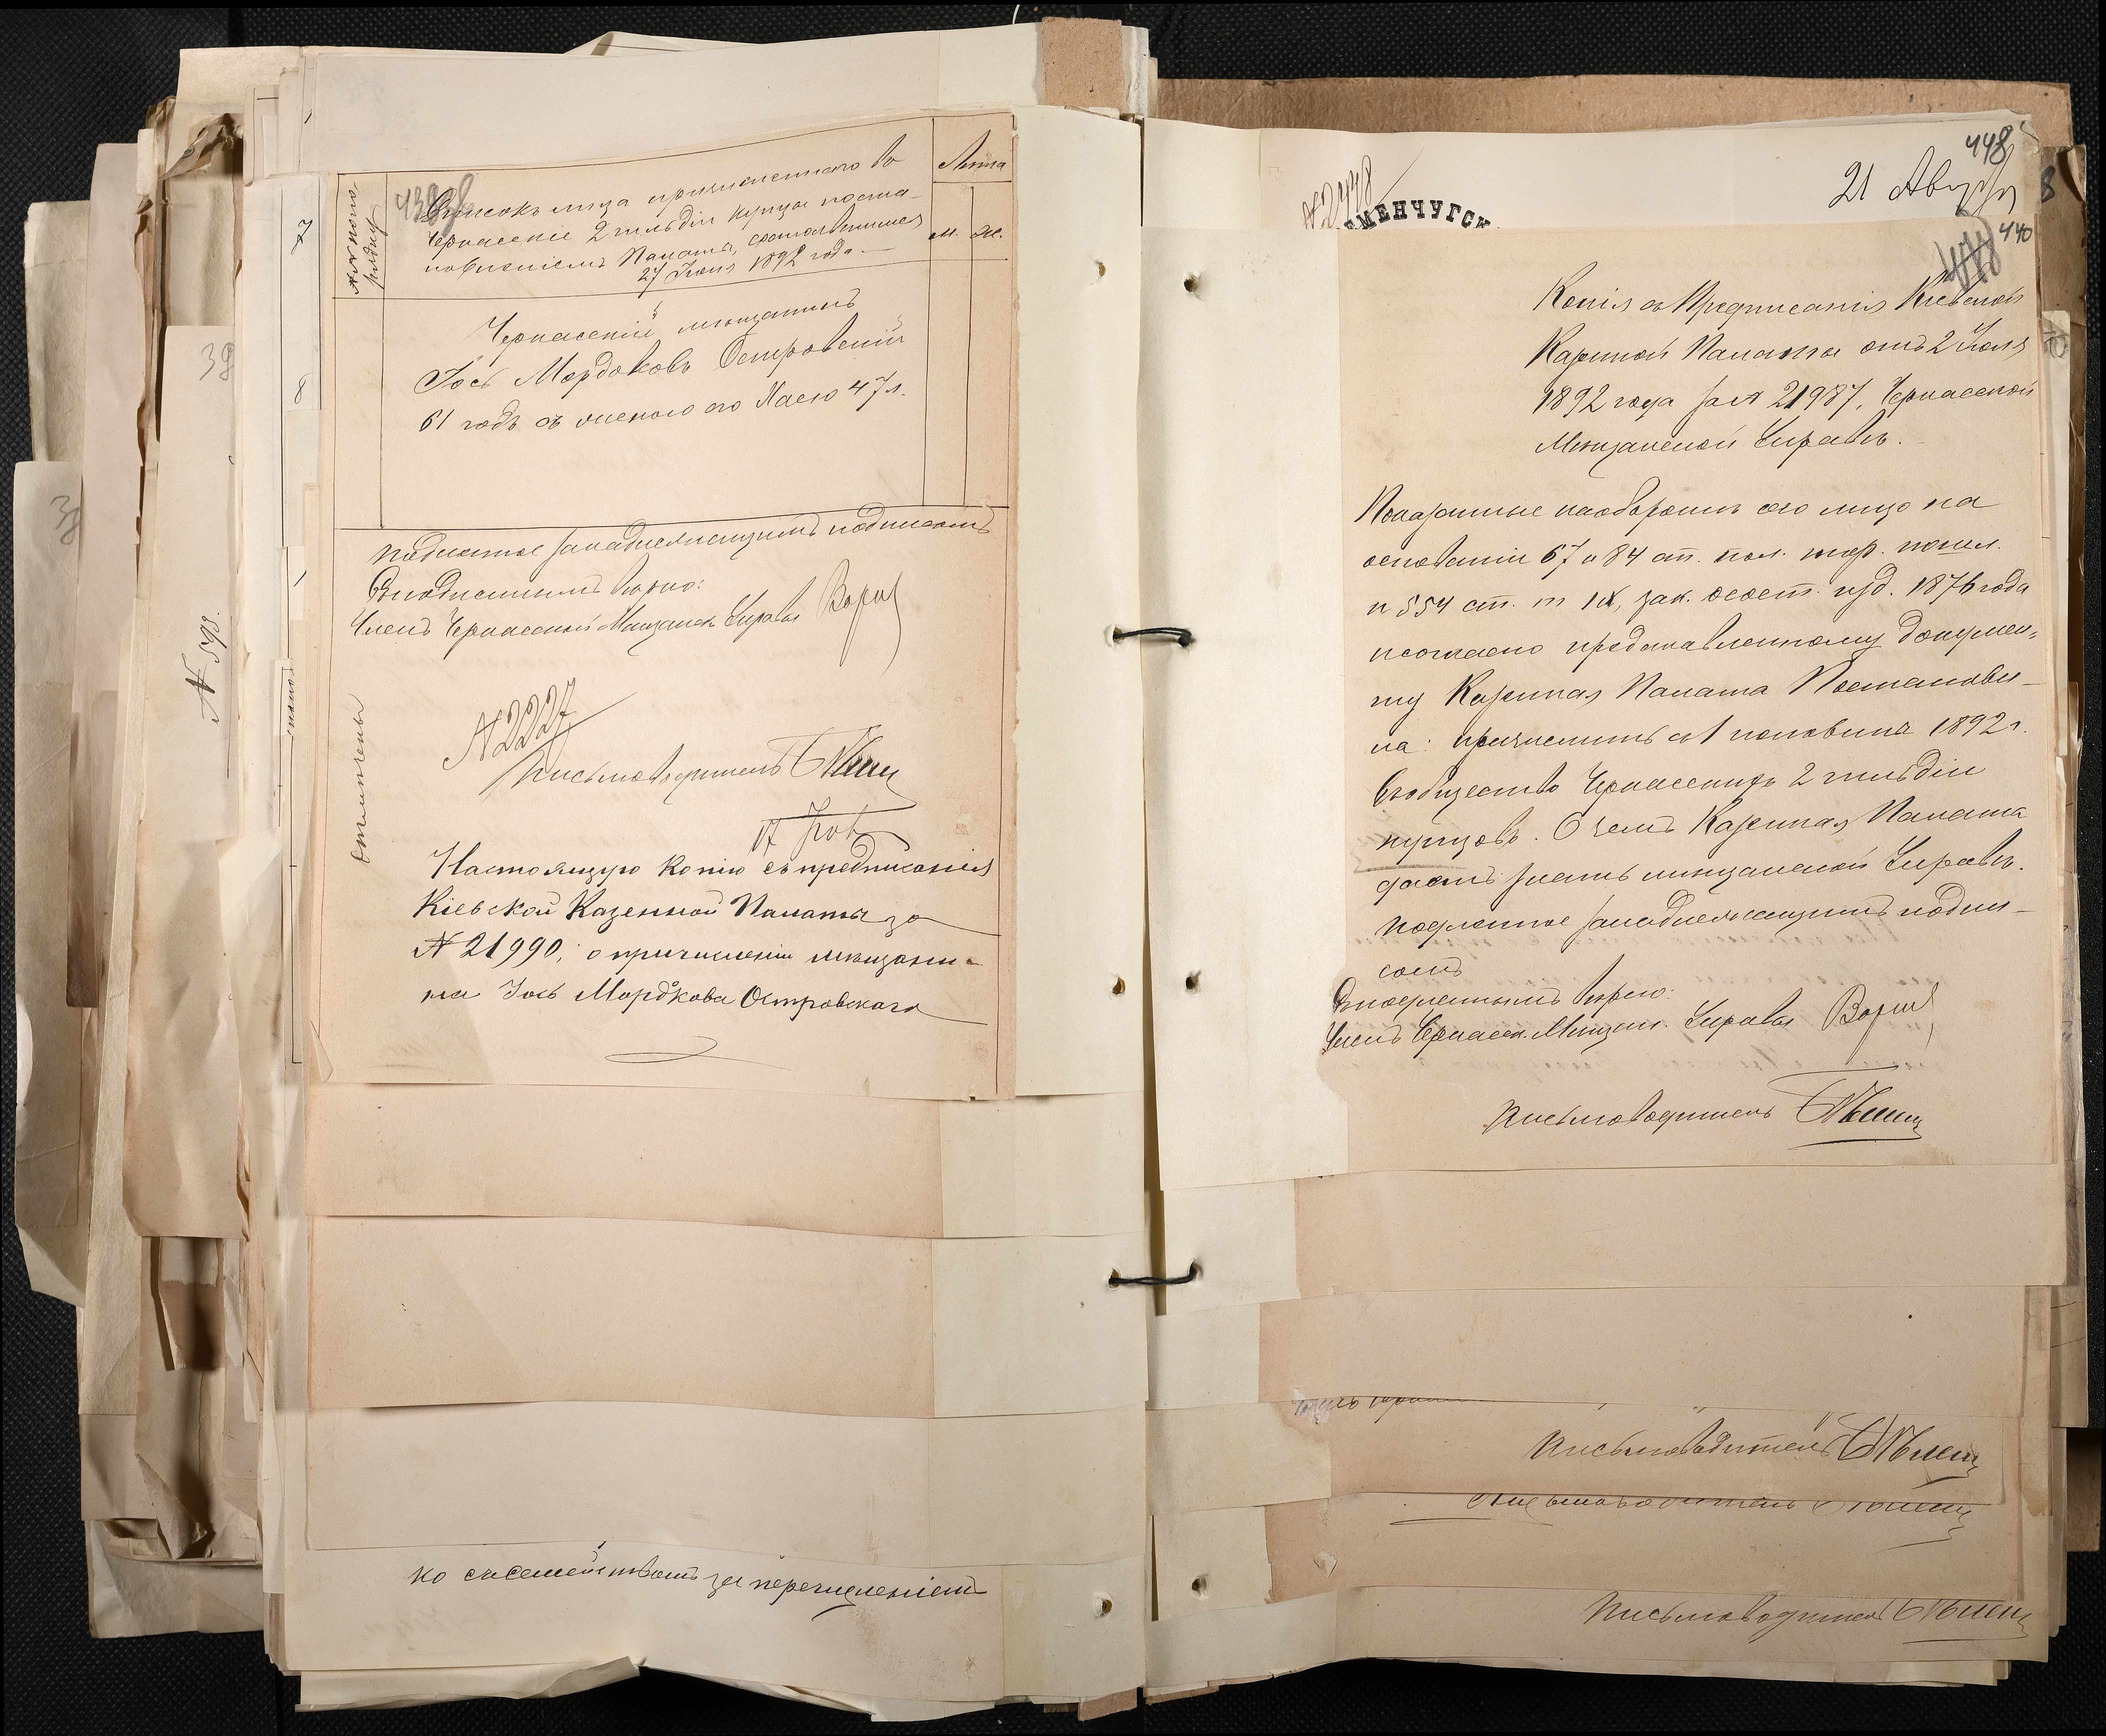 Списокъ лица причисленнаго во
Черкаскіе 2 гильдіи купцы поста-
новленіемъ Палаты, состоявшимся
27 Іюня 1892 года
Лѣта
м. ж.
Черкаскій мѣщанинъ
Іось Мордковъ Островскій
61 годъ съ женою его Хаею 47 л.
Подлинное за надлежащимъ подписомъ
Съ подлиннымъ вѣрно:
Членъ Черкаской Мѣщанск. Управы
№ 2227
Письмоводитель
Настоящую копію съ предписанія
Кіевской Казенной Палаты за
№ 21990, о причисленіи мѣщани-
на Іось Мордкова Островскаго
№ 598.
39
7
8
но съ семействомъ за перечисленіемъ
№ 2448
МЕНЧУГСК
448
21 Августа
440
Копія съ Предписанія Кіевской
Казенной Палаты отъ 2 Іюля
1892 года за № 21987, Черкаской
Мѣщанской Управѣ.
Показанные на оборотѣ сего лицо на
основаніи 67 и 84 ст. пол. тор. пошл.
и 554 ст. т IX, зак. сост. изд. 1876 года
и согласно представленному докумен-
ту Казенная Палата Постанови-
ла: причислить съ 1 половины 1892 г.
въ общество Черкаскихъ 2 гильдіи
купцовъ. О чемъ Казенная Палата
даетъ знать мѣщанской Управѣ.
Подлинное за надлежащимъ подпи-
сомъ
Съ подлиннымъ вѣрно:
Членъ Черкасск. Мѣщан. Управы
Письмоводитель
Письмоводитель
Письмоводитель
Письмоводитель